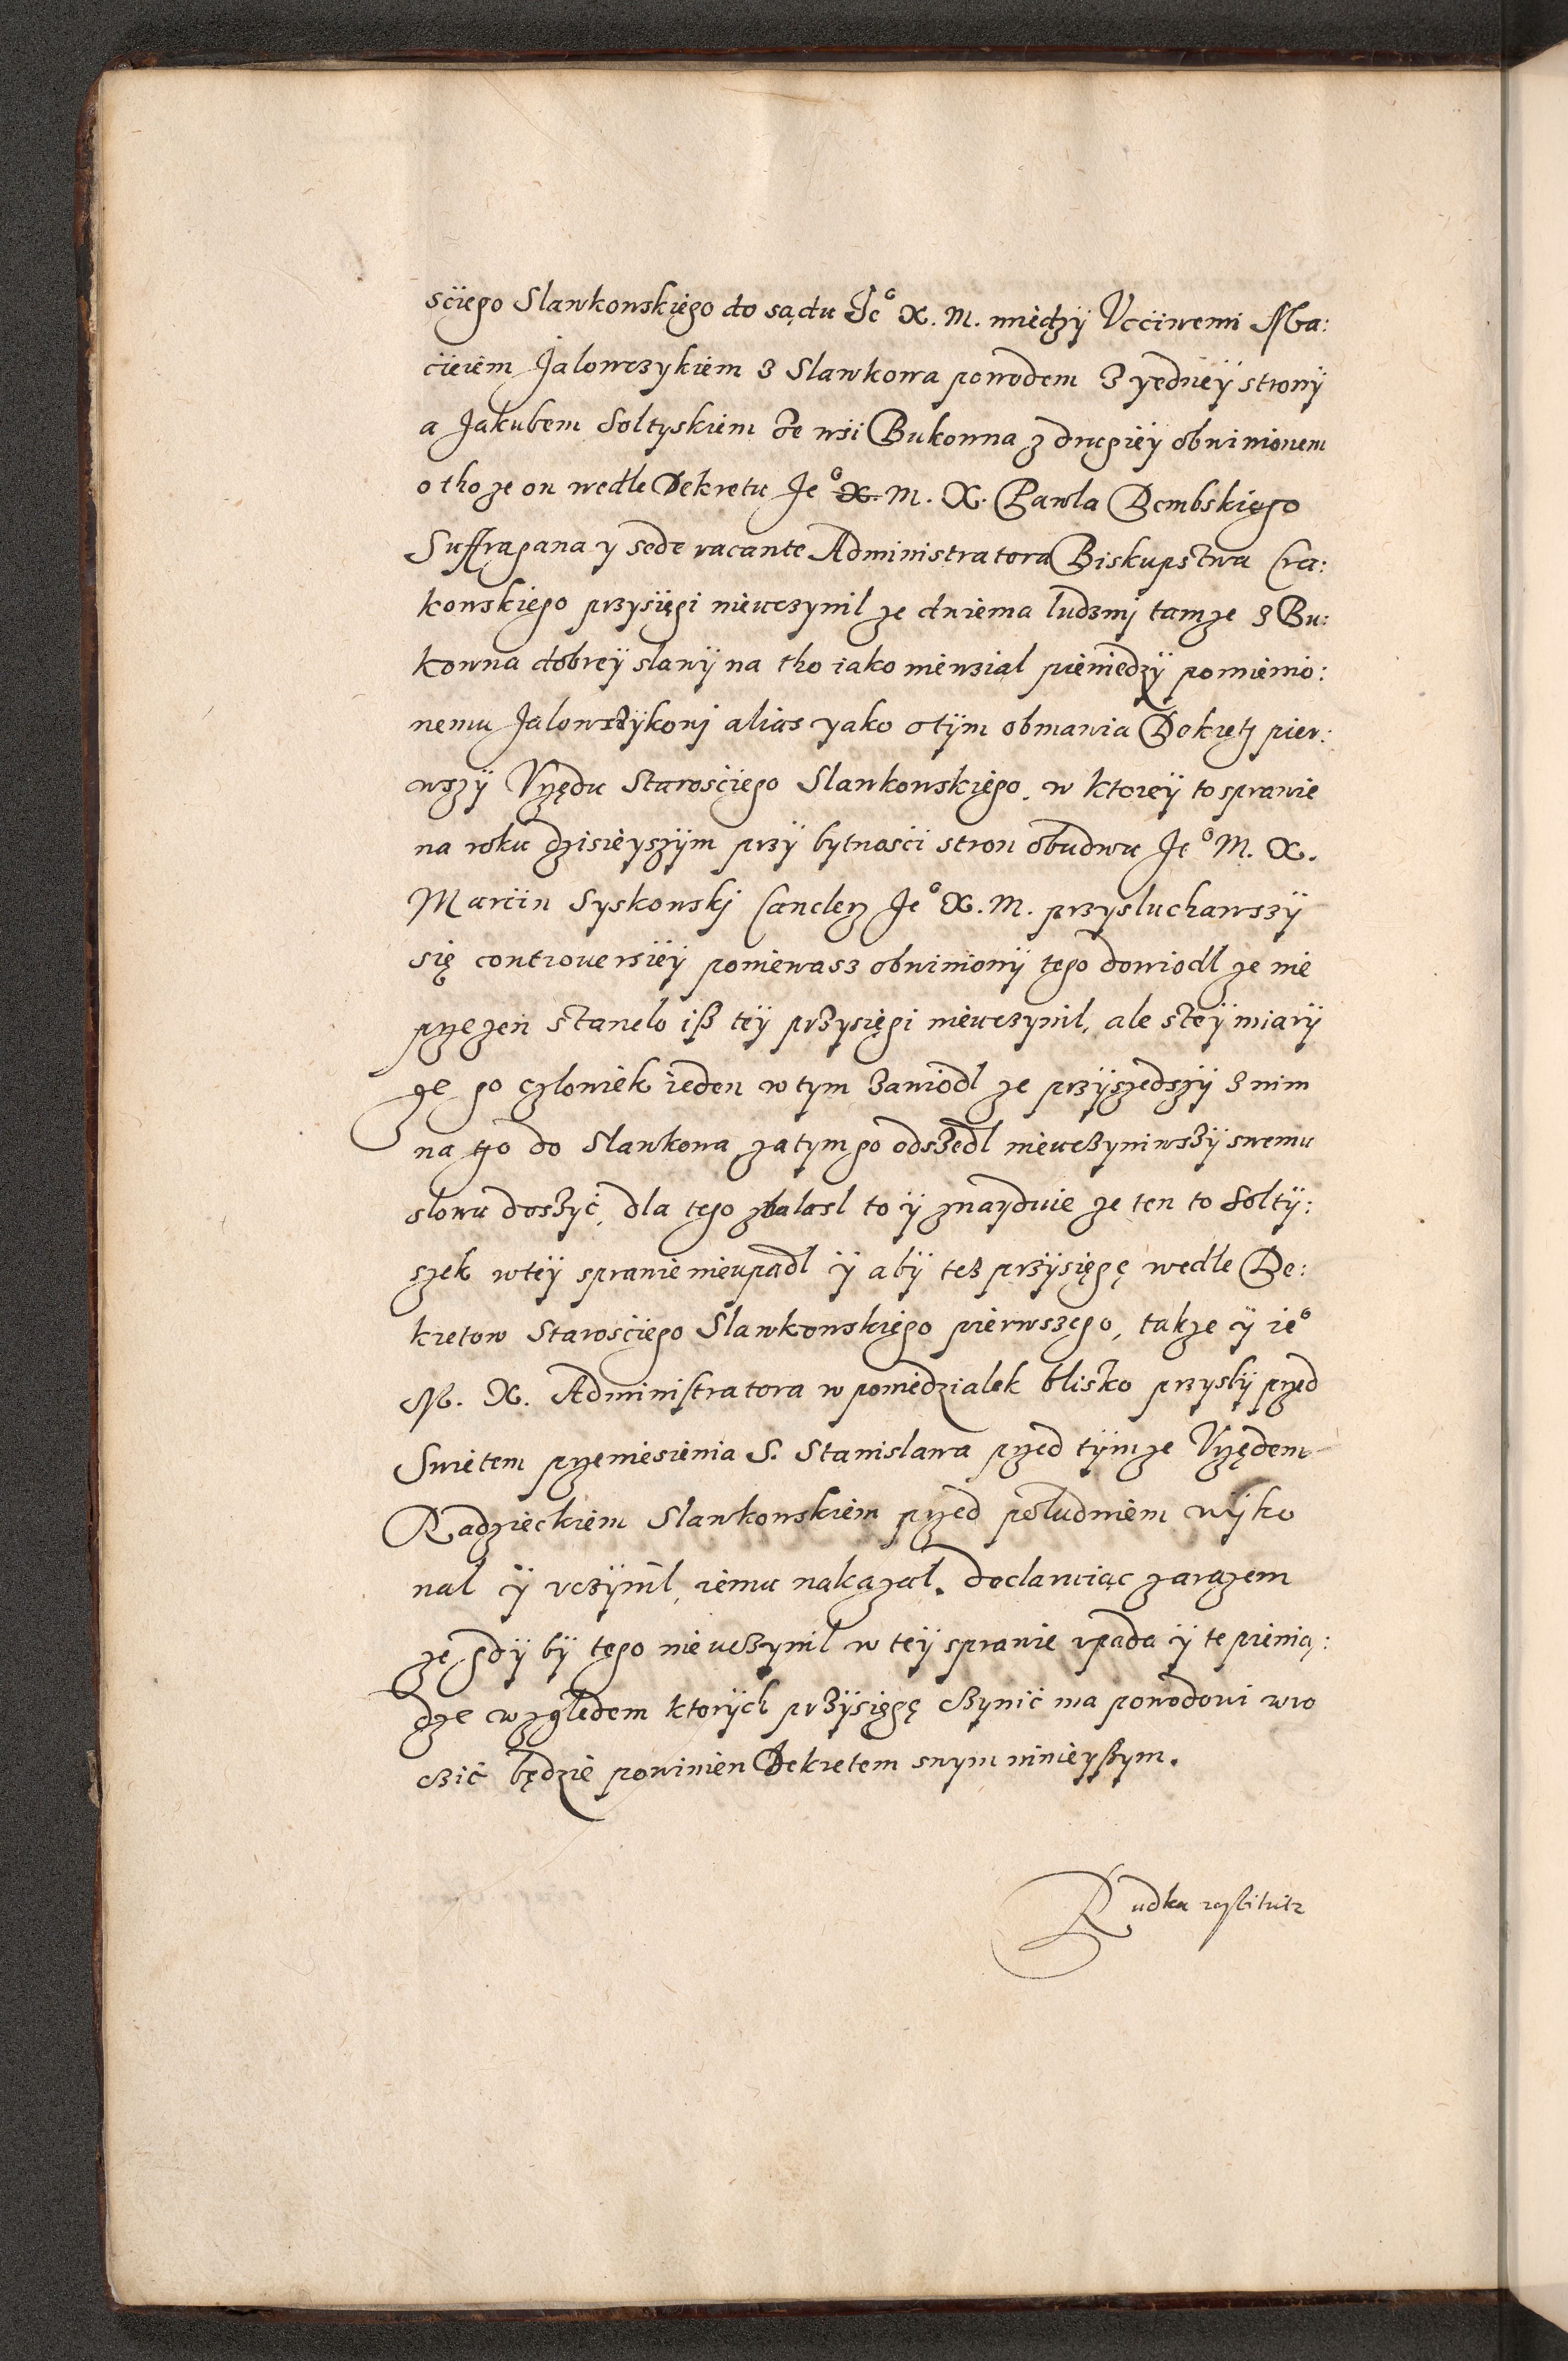 sćiego Slawkowskięgo do sądu Je⁰ X. M. międzÿ Vcciwemi Ma:
cieiem Jalowczykiem z Slawkowa powodem z yedneÿ stronÿ
a Jakubem Soltyskiem ze wsi Bukowna z drugieÿ obwinionem
o tho ze on wedle Dekretu Je⁰ X. M. X. Pawla Dembskięgo
Suffragana y sede vacante Administratora Biskupstwa Cra:
kowskiego przysięgi nieuczynil ze dwiema ludzmj tamze z Bu:
kowna dobreÿ slawÿ na tho iako niewzial pieniedzÿ pomienio:
nemu Jalowszÿkowj alias yako otÿm obmawia Dekretz pier:
wszÿ Vrzędu Starosćiego Slawkowskięgo, w ktoreÿ to sprawie
na roku dzisieyszÿm przÿ bytnosći stron obudwu Je⁰ M. X.
Marcin Syskowskj Canclerz Je⁰ X. M. przysluchawszÿ
się controuersieÿ poniewasz obwinionÿ tego dowiodl ze nie
przezen stanelo iß teÿ przysięgi nieuczynil, ale zteÿ miarÿ
ze go czlowiek ieden w tym zawiodl ze przÿszedszÿ z nim
na tho do Slawkowa zatym go odszedl nieuczyniwszÿ swemu
slowu doszyć, dla tego znalasl to ÿ znayduie ze ten to Soltÿ:
szek wteÿ sprawie nieupadl ÿ abÿ tez przÿsięgę wedle De:
kretow Starosćiego Slawkowskięgo pierwszego, takze ÿ ie⁰
M. X. Administratora w poniedzialek blisko przyslÿ przed
Swietem przeniesienia S. Stanislawa przed tÿmze Vrzędem
Radzieckiem Slawkowskiem przed poludniem wÿko
nal ÿ vczÿnil, iemu nakazal. declaruiąc zarazem
ze gdÿ bÿ tego nie uczynil w teÿ sprawie vpada ÿ te pienią:
dze względem ktorÿch przÿsięgę czynić ma powodowi wro
czić będzie powinien Dekretem swym ninieyßym.
Rudka